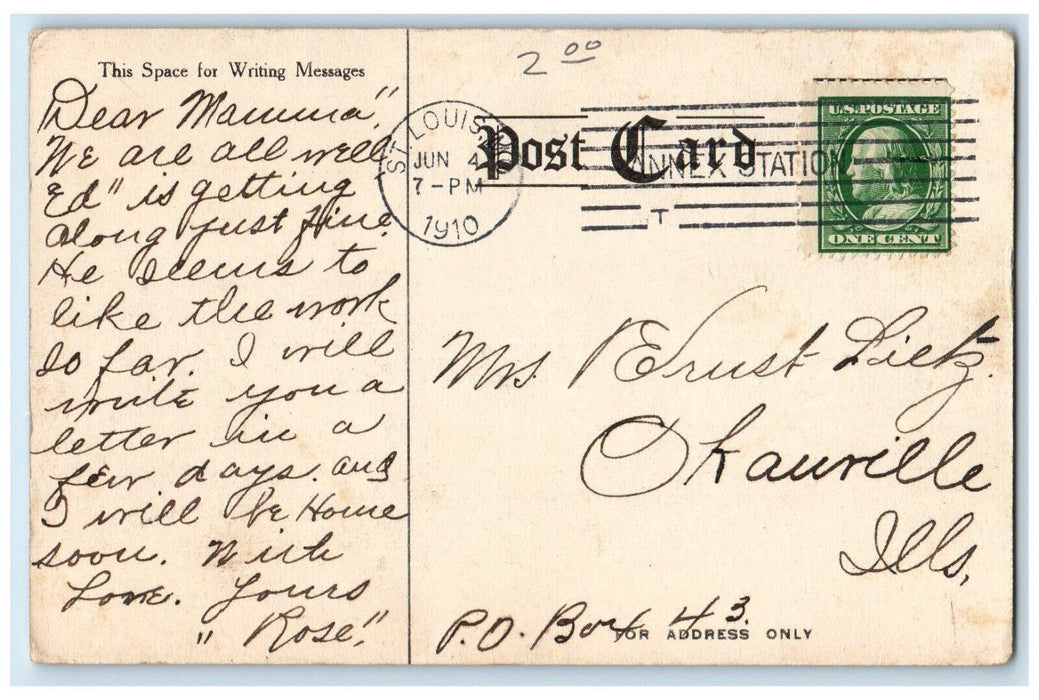 2 00
This Space for Writing Messages
Dear Mamma,"
We are all well
Ed" is getting
along just fine.
He seems to
like the work
so far. I will
write you a
letter in a
few days. and
I will be Home
soon. With
Love. Yours
" Rose."
ST. LOUIS, MO.
JUN 4
7-PM
1910
Post Card
ANNEX STATION
T
U.S. POSTAGE
ONE CENT
Mrs. Ernst Lietz.
Okauville
Ills,
P.O. Box 43.
FOR ADDRESS ONLY